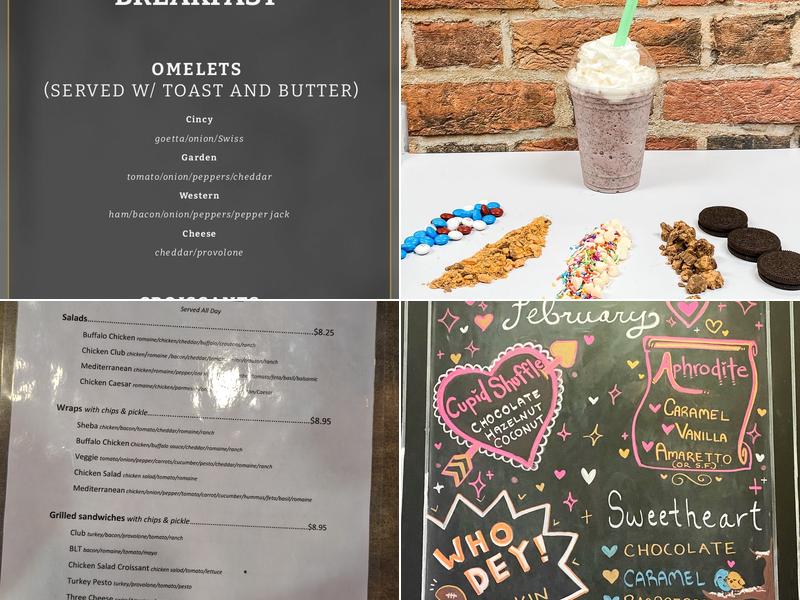 BREAKFAST
OMELETS
(SERVED W/ TOAST AND BUTTER)
Cincy
goetta/onion/Swiss
Garden
tomato/onion/peppers/cheddar
Western
ham/bacon/onion/peppers/pepper jack
Cheese
cheddar/provolone
CROISSANTS
Served All Day
Salads $8.25
Buffalo Chicken romaine/chicken/cheddar/buffalo/croutons/ranch
Chicken Club chicken/romaine /bacon/cheddar/
Mediterranean chicken/romaine/pepper/ /feta/basil/balsamic
Chicken Caesar romaine/chicken/ /Caesar
Wraps with chips & pickle $8.95
Sheba chicken/bacon/tomato/cheddar/romaine/ranch
Buffalo Chicken Chicken/buffalo sauce/cheddar/romaine/ranch
Veggie tomato/onion/pepper/carrots/cucumber/pesto/cheddar/romaine/ranch
Chicken Salad chicken salad/tomato/romaine
Mediterranean chicken/onion/pepper/tomato/carrot/cucumber/hummus/feta/basil/romaine
Grilled sandwiches with chips & pickle $8.95
Club turkey/bacon/provolone/tomato/ranch
BLT bacon/romaine/tomato/mayo
Chicken Salad Croissant chicken salad/tomato/lettuce
Turkey Pesto turkey/provolone/tomato/pesto
Three Cheese
February
Cupid Shuffle
CHOCOLATE
HAZELNUT
COCONUT
Aphrodite
CARAMEL
VANILLA
AMARETTO
(OR S.F.)
WHO
DEY!
Sweetheart
CHOCOLATE
CARAMEL